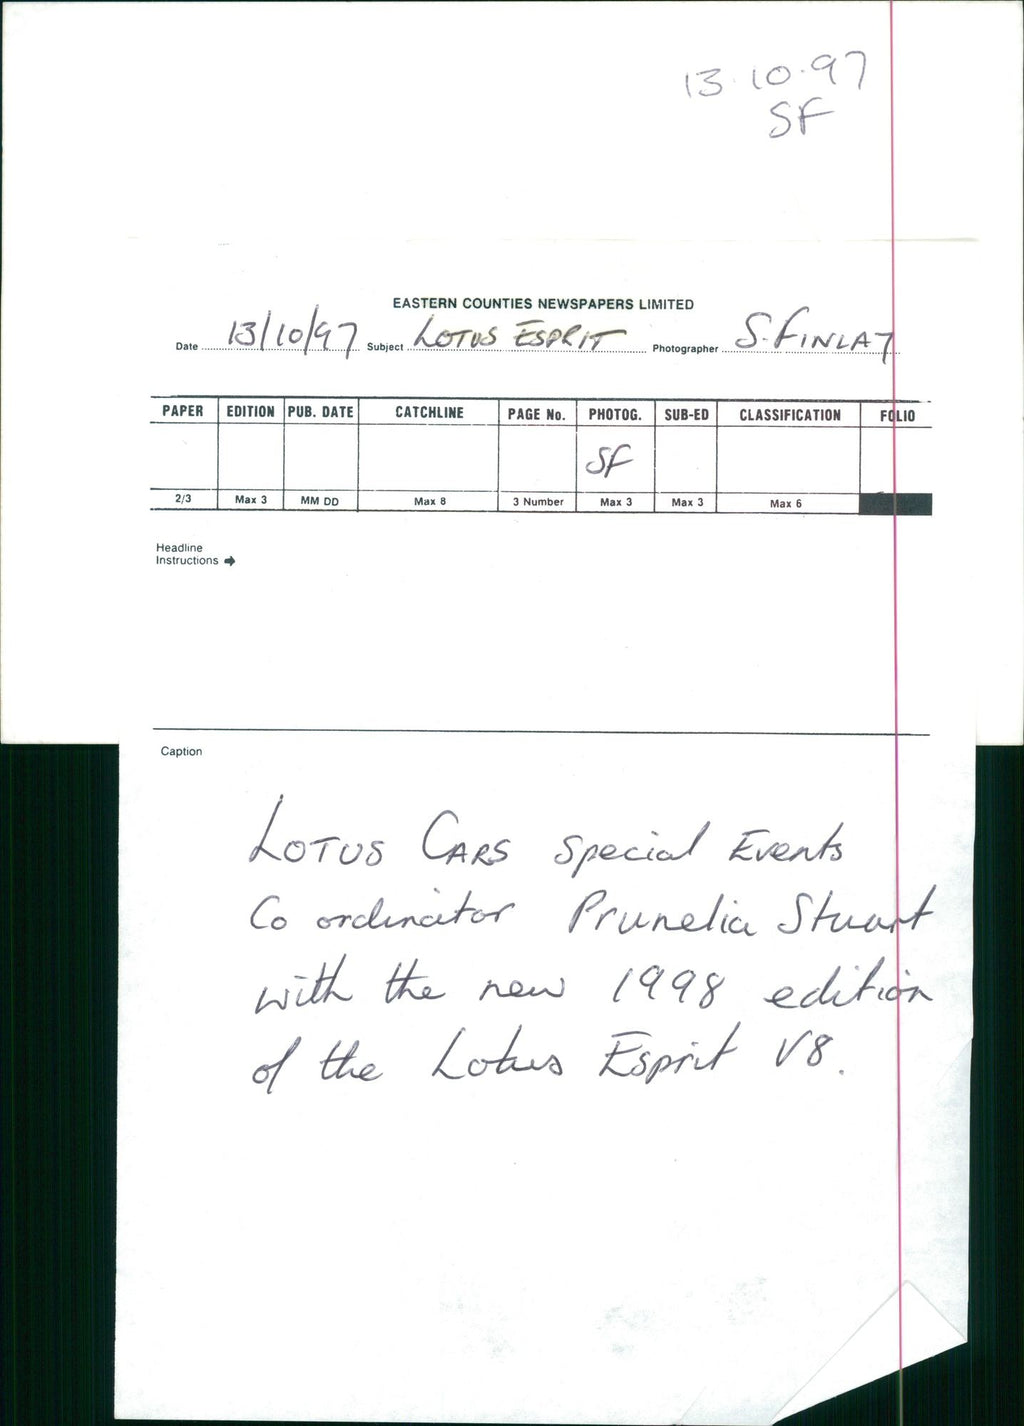 13.10.97
SF
EASTERN COUNTIES NEWSPAPERS LIMITED
Date 13/10/97 Subject LOTUS ESPRIT Photographer S. FINLAY
PAPER EDITION PUB. DATE CATCHLINE PAGE No. PHOTOG. SUB-ED CLASSIFICATION FOLIO
SF
2/3 Max 3 MM DD Max 8 3 Number Max 3 Max 3 Max 6
Headline
Instructions ➔
Caption
LOTUS CARS Special Events
Co ordinator Prunelia Stuart
with the new 1998 edition
of the Lotus Esprit V8.